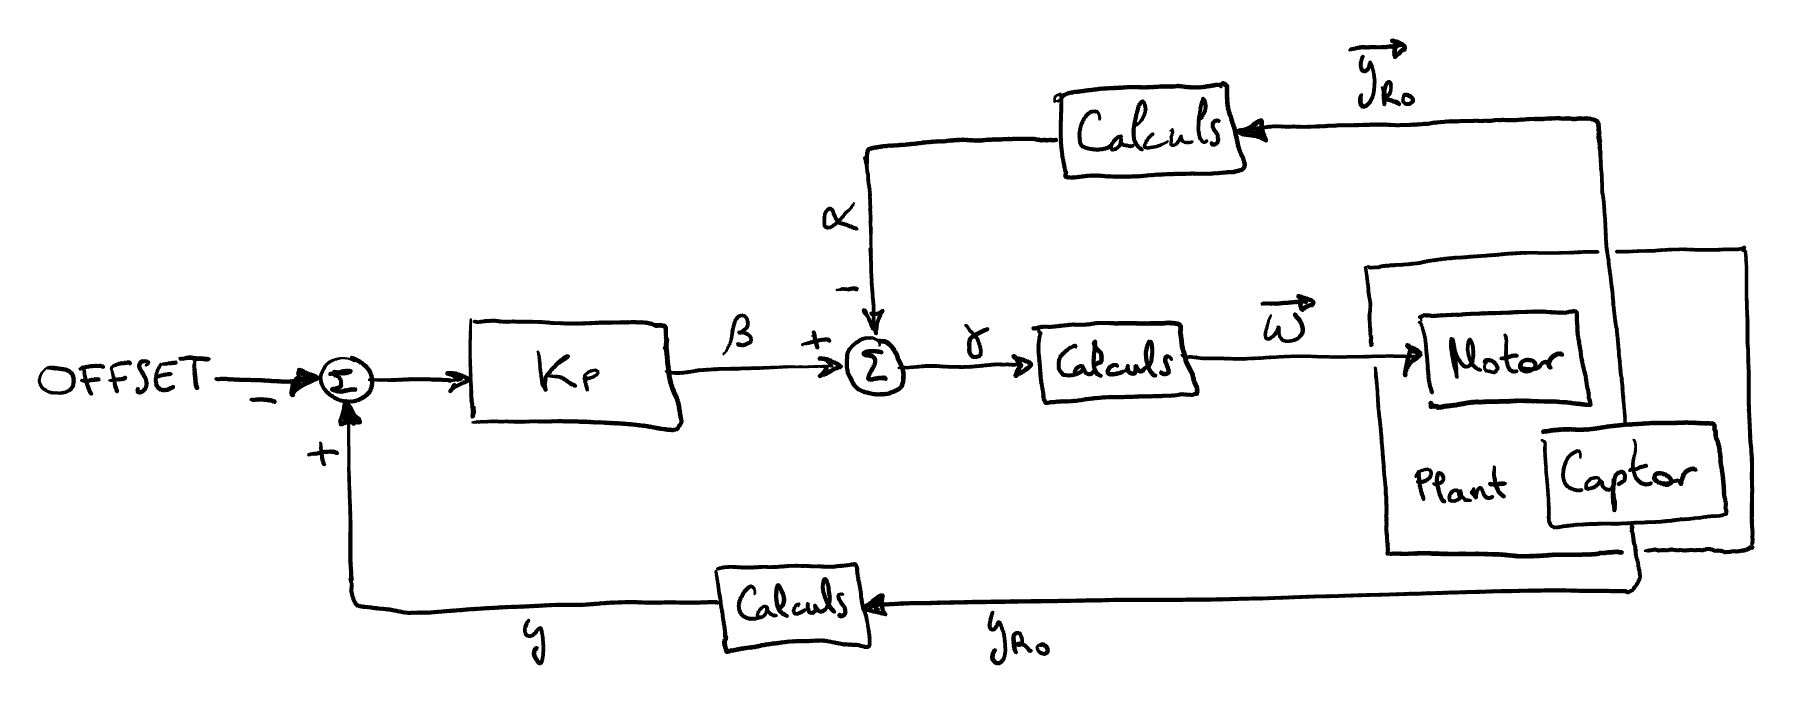 y⃗_R0
Calculs
α
−
OFFSET
−
Σ
+
Kp
β
+
Σ
γ
Calculs
ω⃗
Motor
Plant
Captor
Calculs
y
y_R0